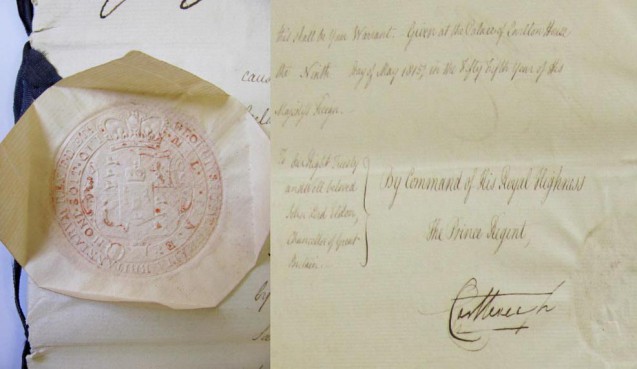 caus
this shall be Your Warrant. Given at the Palace of Carlton House
the Ninth Day of May 1815, in the Fifty fifth Year of His
Majesty's Reign.
To Our Right Trusty
and well beloved
John Lord Eldon,
Chancellor of Great
Britain.
By Command of His Royal Highness
The Prince Regent,
Castlereagh